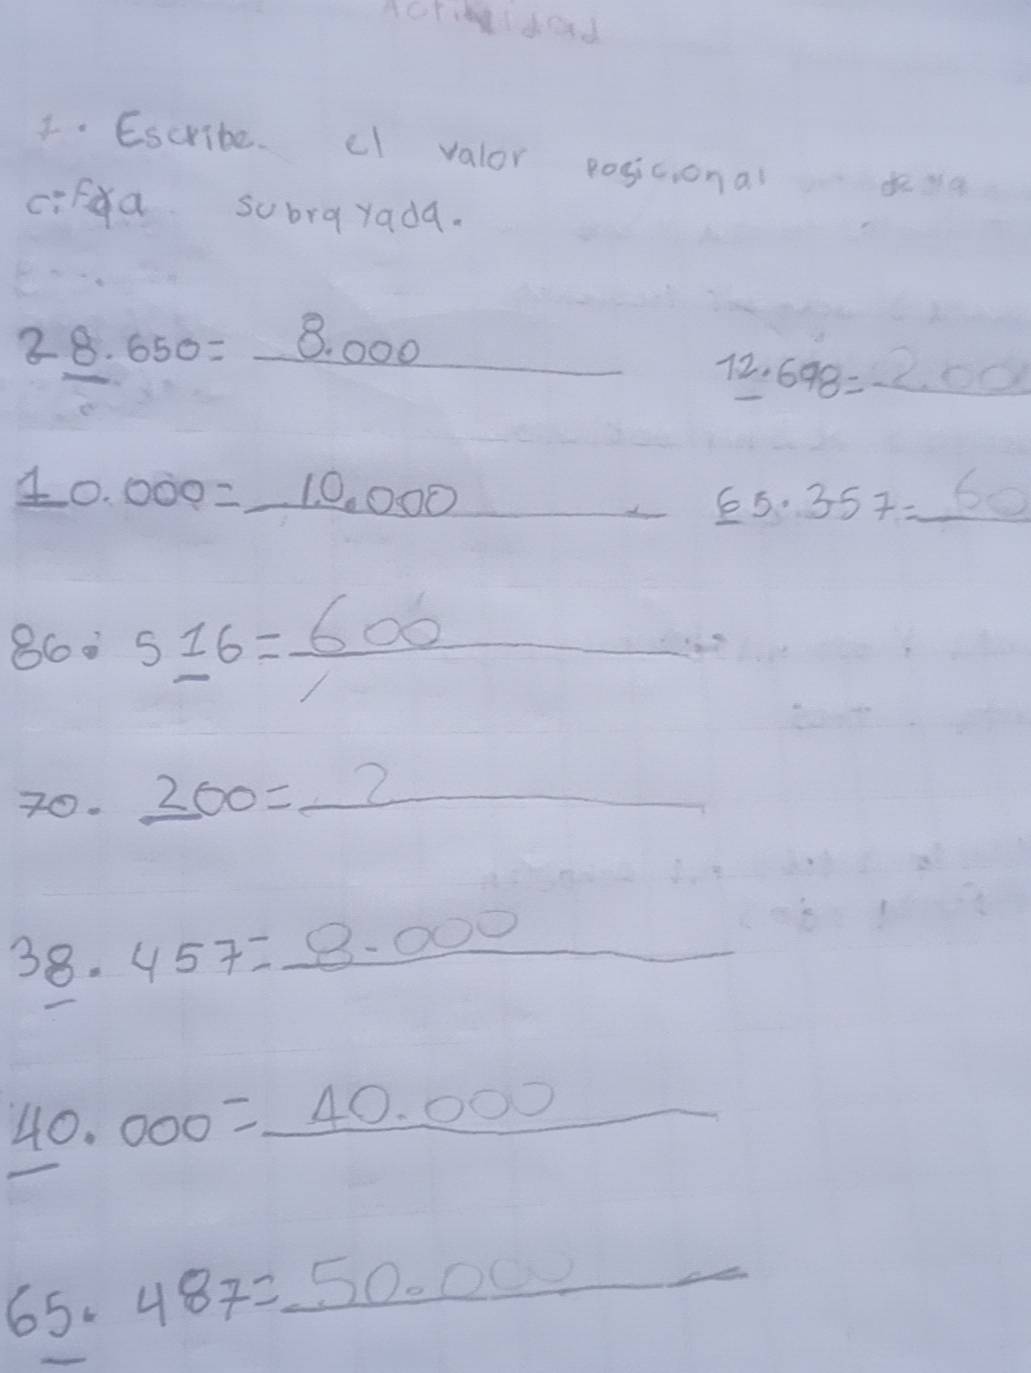 Actividad
1. Escribe el valor posicional de la
cifra subrayada.
28.650= 8.000
12.698= 2.00
10.000= 10.000
65.357= 60
86. 516= 600
70. 200= 2
38. 457= 8.000
40. 000= 40.000
65. 487= 50.000